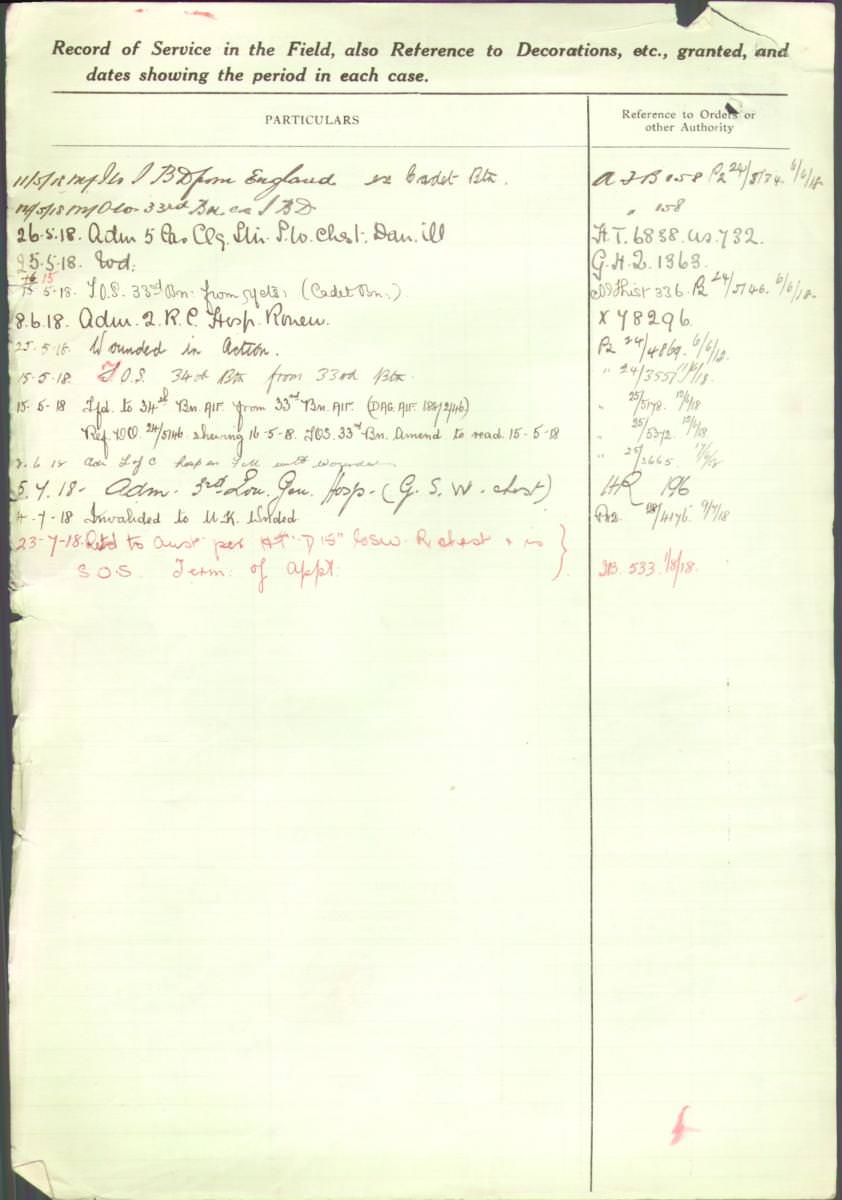 Record of Service in the Field, also Reference to Decorations, etc., granted, and
dates showing the period in each case.
PARTICULARS
Reference to Orders or
other Authority
11/5/18 I B D from England ex Cadet Btn. A F B 158 P2 24/5/74. 6/6/18
33rd Bn ex I B D " 158
26.5.18. Adm 5 Cas Clg Stn. S.W. Chest. Dan. ill H.T. 6838. W3. 732.
25.5.18. Wd. G.H.Q. 1363.
16 15
15 5.18. T.O.S. 33rd Bn: from (Cadet Bn:) 336. P2 24/5146. 6/6/18.
8.6.18. Adm. 2. R.C. Hosp. Rouen. X 78296
25.5.18 Wounded in Action. P2 24/4869. 6/6/18
15-5-18. T.O.S. 34th Btn from 33rd Btn. " 24/3551
15-5-18 Tfd. to 34th Bn. AIF. from 33rd Bn. AIF. (DAG. AIF. 182/2/46) " 25/5178. 12/6/18
Ref. WO. 24/5146. shewing 16-5-8. TOS. 33rd Bn. Amend to read. 15-5-18 " 25/5372. 12/6/18
8.6.18 L of C " 25/3665.
5.7.18- Adm. 3rd Lon. Gen. Hosp- (G. S. W. chest) HR 196
4-7-18 Invalided to U.K. Wnded P2. 28/4176. 9/7/18
23-7-18. Retd to Aust per HT "D 15" GSW. R chest & is
S.O.S. Term. of Appt. 533. 1/8/18.